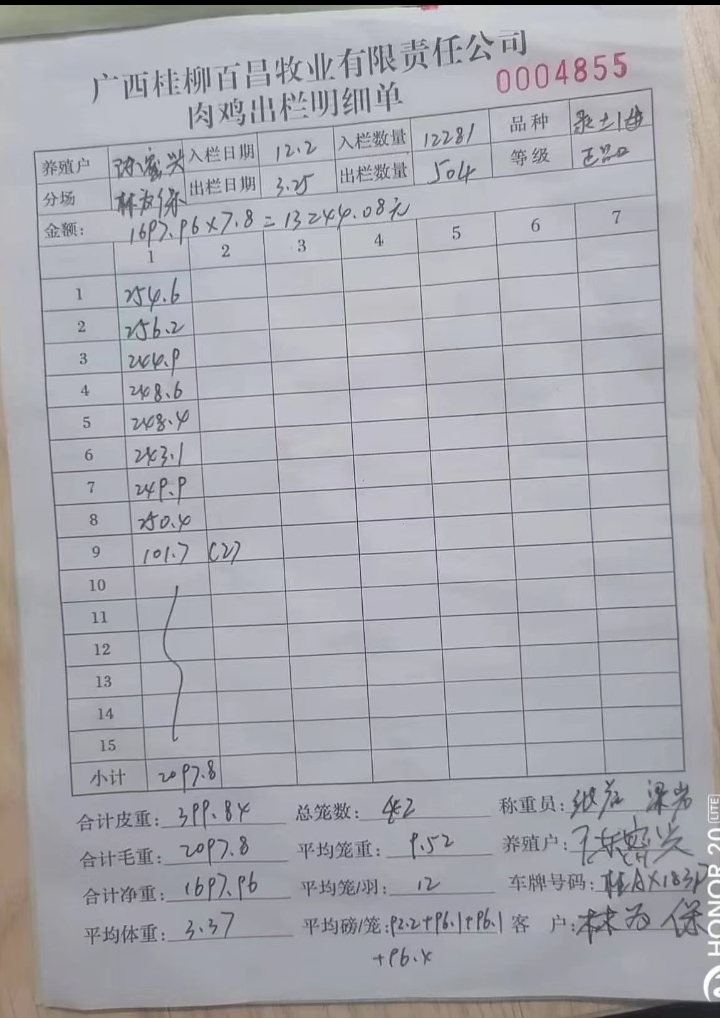 广西桂柳百昌牧业有限责任公司
0004855
肉鸡出栏明细单
养殖户 入栏日期 12.2 入栏数量 12281 品种
分场 林为保 出栏日期 3.25 出栏数量 504 等级 正品
金额: 1697.96×7.8=13244.08元
1 2 3 4 5 6 7
1 254.6
2 256.2
3 244.9
4 248.6
5 248.4
6 243.1
7 249.9
8 250.4
9 101.7 (2)
10
11
12
13
14
15
小计 2097.8
合计皮重: 399.84 总笼数: 42 称重员:
合计毛重: 2097.8 平均笼重: 9.52 养殖户:
合计净重: 1697.96 平均笼/羽: 12 车牌号码:
平均体重: 3.37 平均磅/笼: 92.2+96.1+96.1 客 户: 林为保
+96.4
HONOR 20 LITE